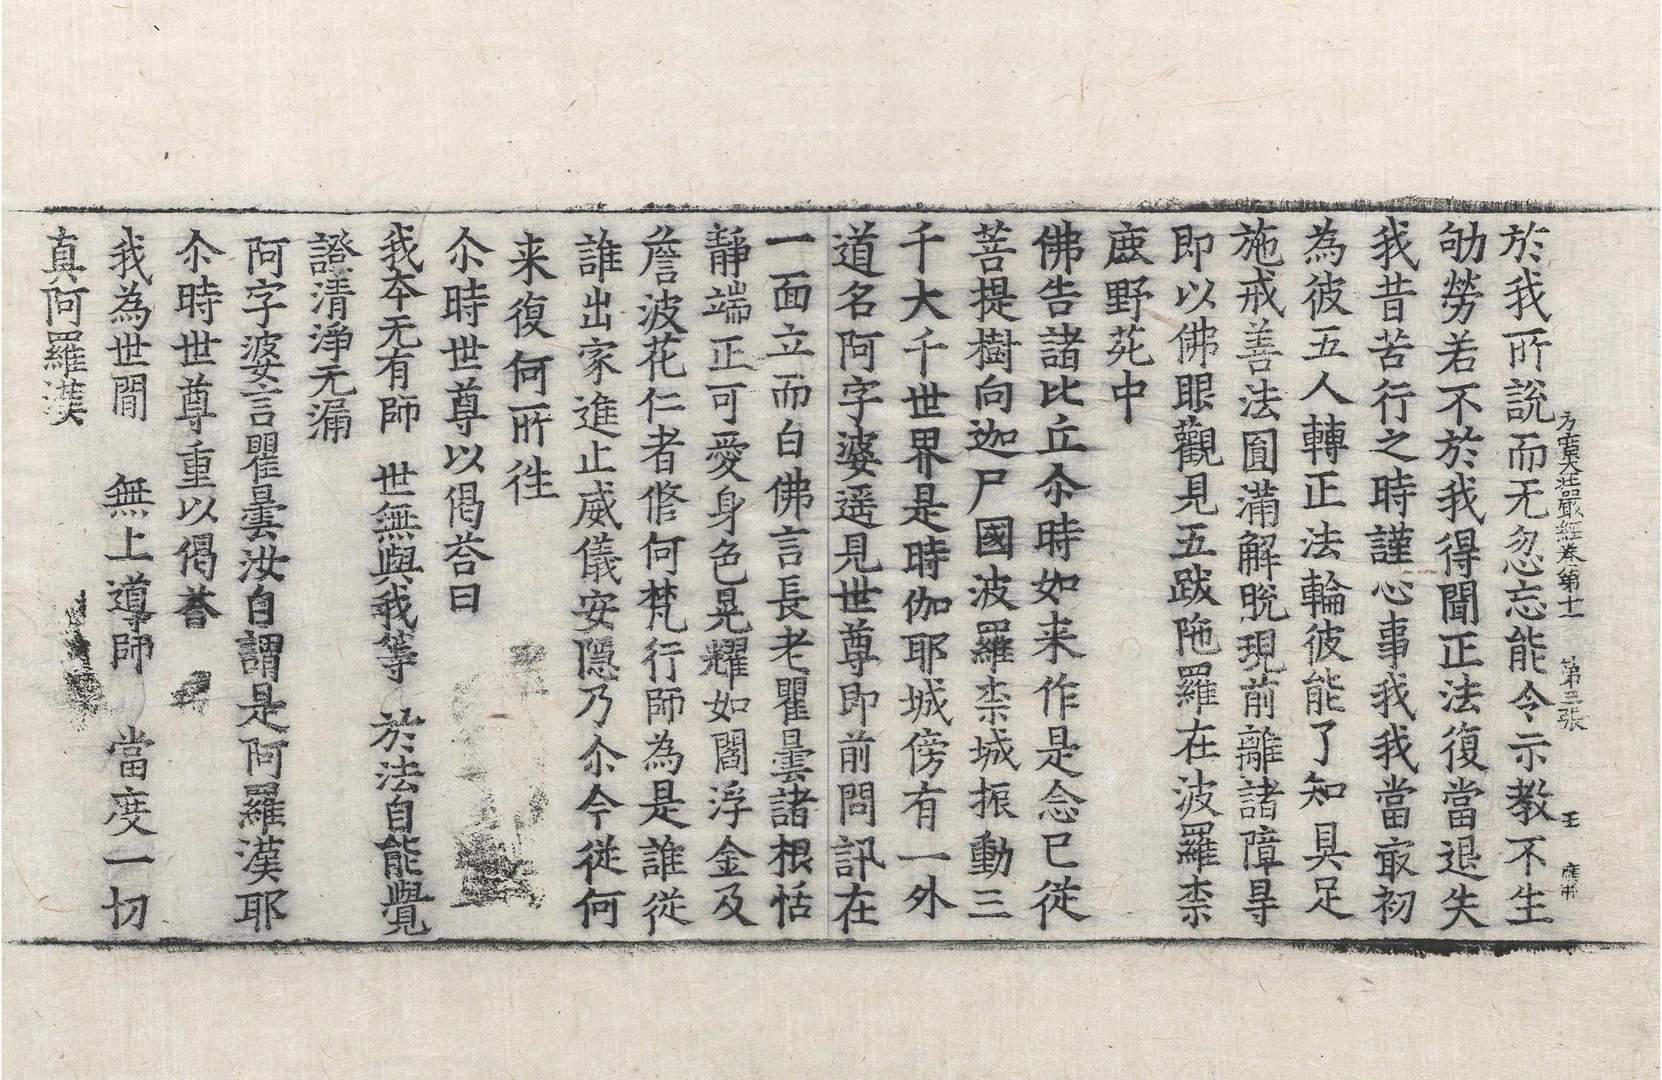 方廣大莊嚴經卷第十一 第三張 王
於我所說而无忽忘能令示教不生
劬勞若不於我得聞正法復當退失
我昔苦行之時謹心事我我當㝡初
為彼五人轉正法輪彼能了知具足
施戒善法圓滿解脫現前離諸障㝵
即以佛眼觀見五跋陁羅在波羅柰
鹿野苑中
佛告諸比丘尒時如来作是念已從
菩提樹向迦尸國波羅柰城振動三
千大千世界是時伽耶城傍有一外
道名阿字婆遥見世尊即前問訊在
一面立而白佛言長老瞿曇諸根恬
靜端正可愛身色晃耀如閻浮金及
詹波花仁者修何梵行師為是誰從
誰出家進止威儀安隱乃尒今從何
来復何所徃
尒時世尊以偈荅曰
我夲无有師 世無與我等 於法自能覺
證清淨无漏
阿字婆言瞿曇汝自謂是阿羅漢耶
尒時世尊重以偈荅
我為世間 無上導師 當度一切
真阿羅漢